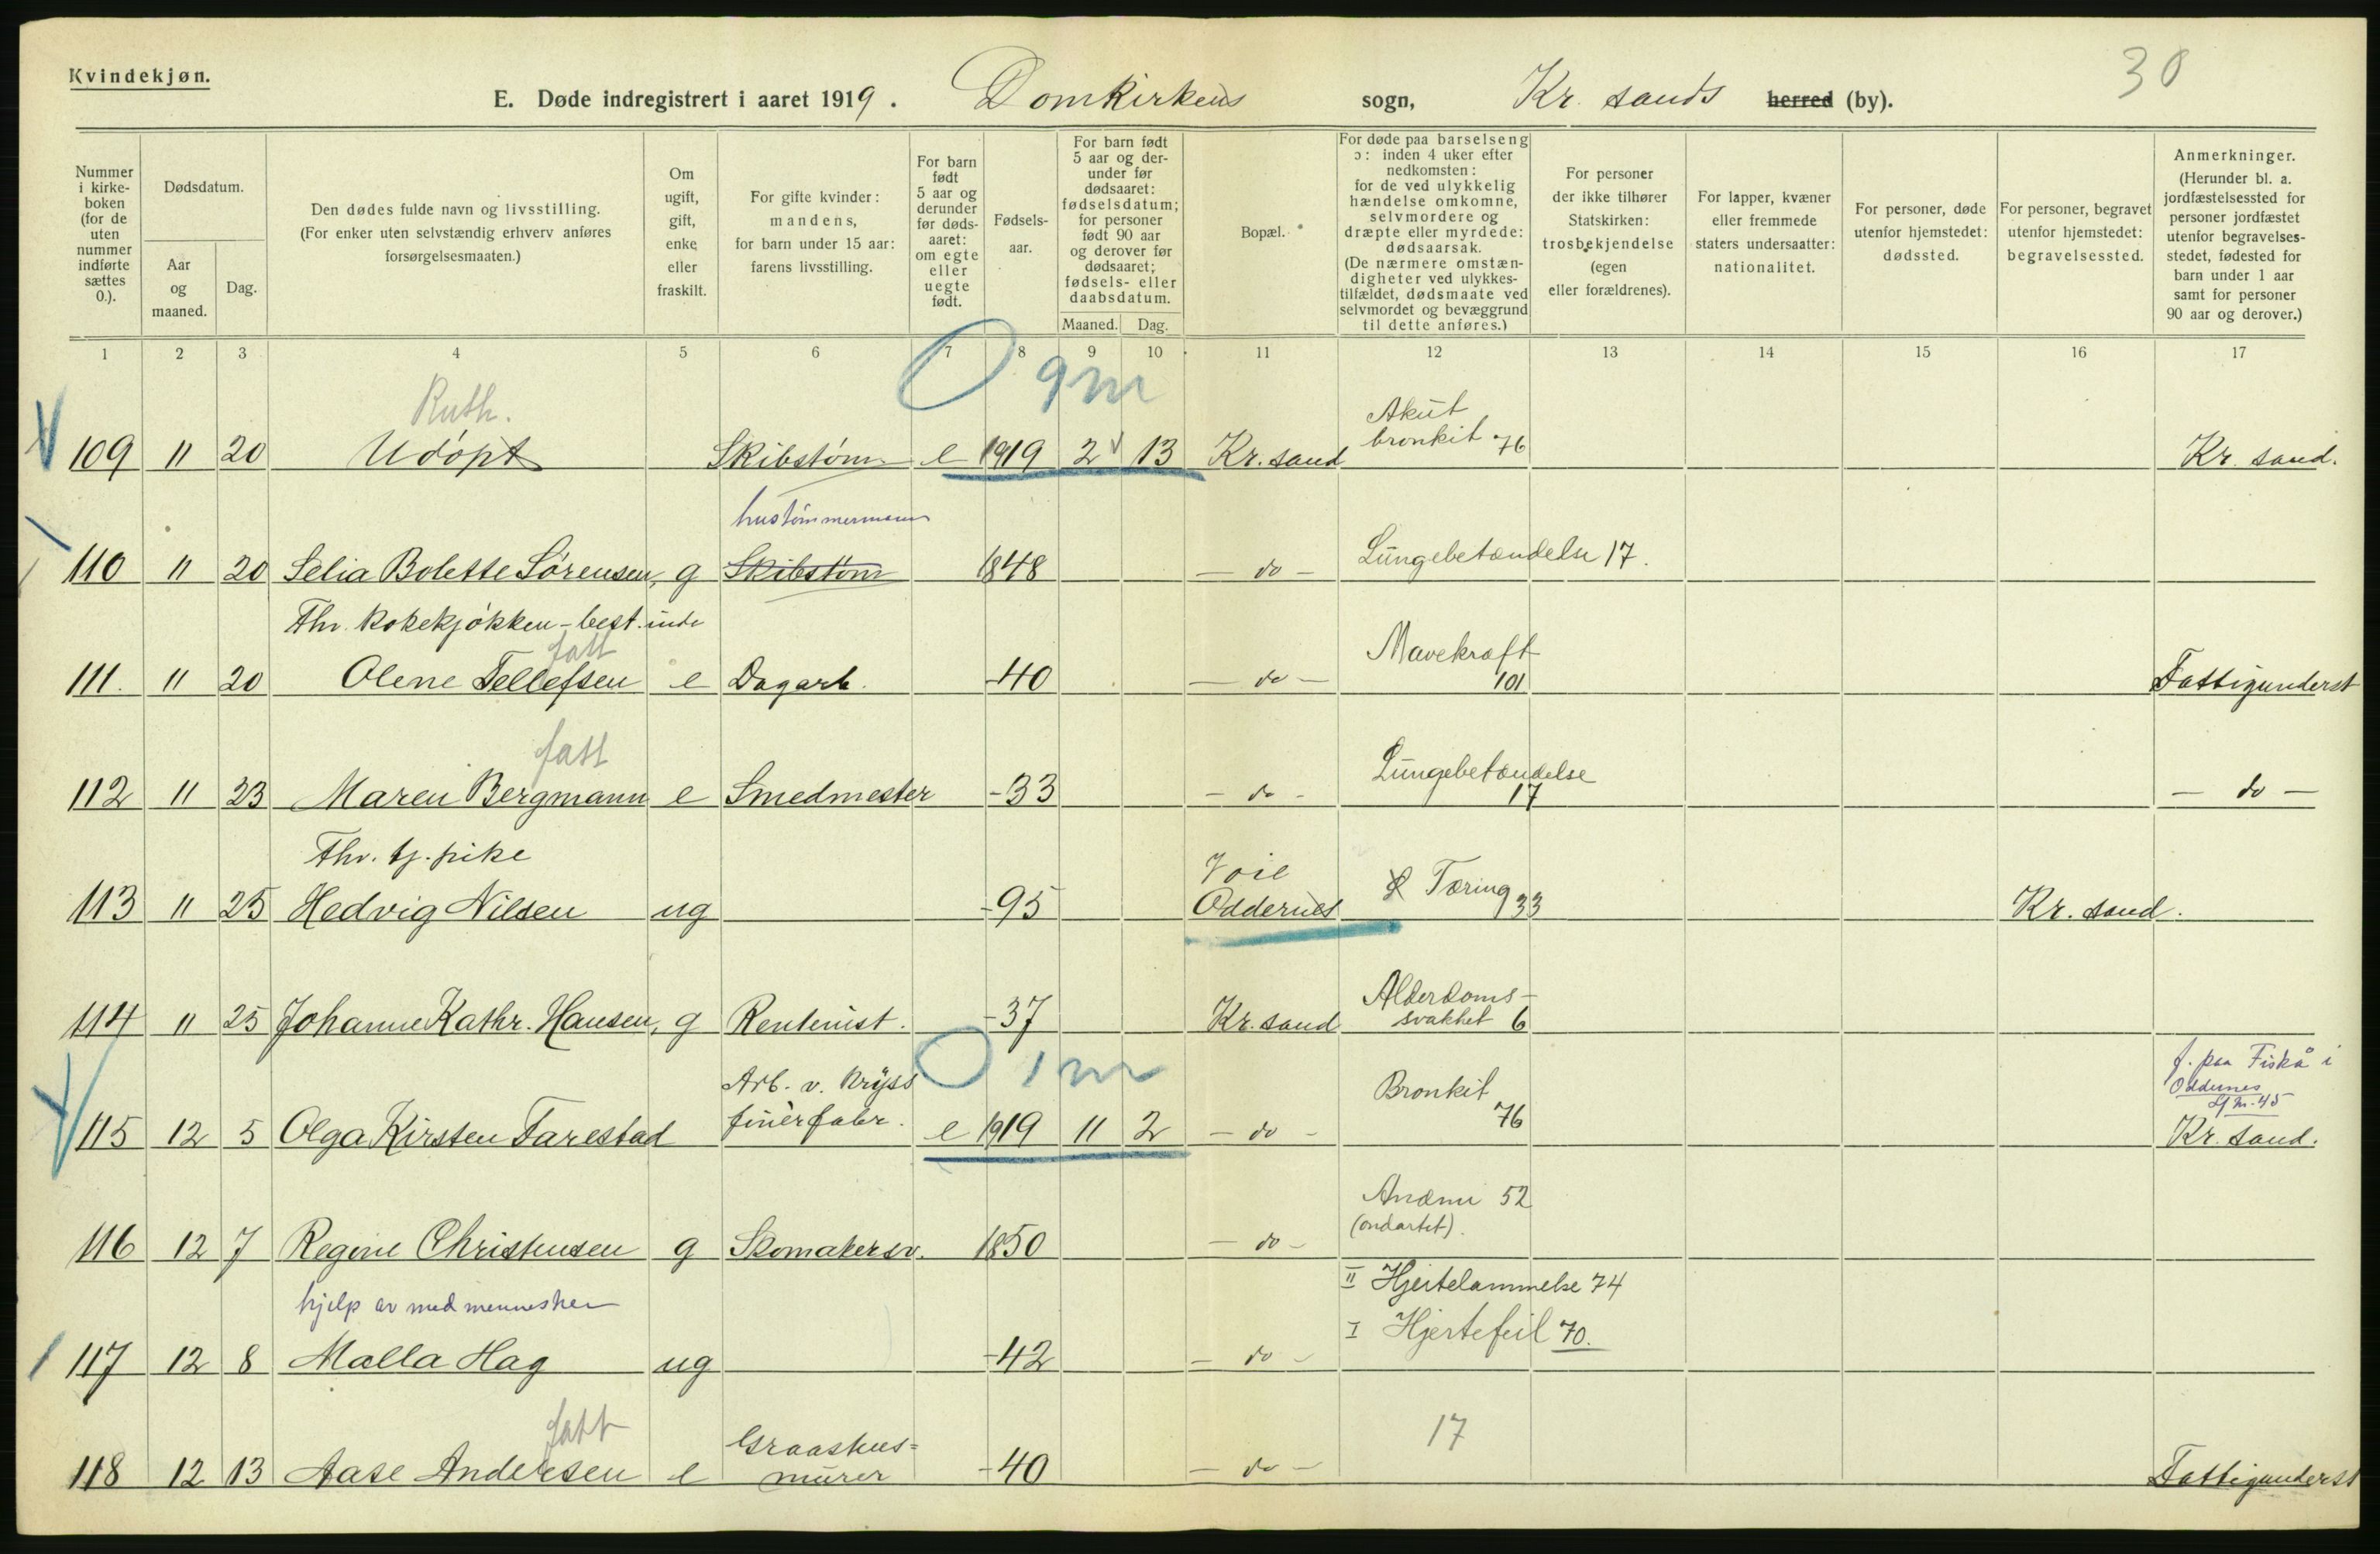 Kvindekjøn.
30
E. Døde indregistrert i aaret 1919. Domkirkens sogn, Kr. sands herred (by).
Nummer i kirke-boken (for de uten nummer indførte sættes 0.).
Dødsdatum.
Aar og maaned.
Dag.
Den dødes fulde navn og livsstilling. (For enker uten selvstændig erhverv anføres forsørgelsesmaaten.)
Om ugift, gift, enke eller fraskilt.
For gifte kvinder: mandens, for barn under 15 aar: farens livsstilling.
For barn født 5 aar og derunder før døds-aaret: om egte eller uegte født.
Fødsels-aar.
For barn født 5 aar og der-under før dødsaaret: fødselsdatum; for personer født 90 aar og derover før dødsaaret; fødsels- eller daabsdatum.
Maaned.
Dag.
Bopæl.
For døde paa barselseng ɔ: inden 4 uker efter nedkomsten: for de ved ulykkelig hændelse omkomne, selvmordere og dræpte eller myrdede: dødsaarsak. (De nærmere omstæn-digheter ved ulykkes-tilfældet, dødsmaate ved selvmordet og bevæggrund til dette anføres.)
For personer der ikke tilhører Statskirken: trosbekjendelse (egen eller forældrenes).
For lapper, kvæner eller fremmede staters undersaatter: nationalitet.
For personer, døde utenfor hjemstedet: dødssted.
For personer, begravet utenfor hjemstedet: begravelsessted.
Anmerkninger. (Herunder bl. a. jordfæstelsessted for personer jordfæstet utenfor begravelses-stedet, fødested for barn under 1 aar samt for personer 90 aar og derover.)
1 2 3 4 5 6 7 8 9 10 11 12 13 14 15 16 17
0 9 m
Ruth.
Akut bronkit 76
109 11 20 Udøpt Skibstøm e 1919 2 13 Kr. sand Kr. sand.
hustømmermann
110 11 20 Selia Bolette Sørensen, g Skibstøm 1848 - do - Lungebetændelse 17.
Fhv. kokekjøkken-best.inde
fatt
Mavekræft 101
111. 11 20 Olene Tellefsen e Dagarb. -40 - do - Fattigunderst
fatt
Lungebetændelse 17
112 11 23 Maren Bergmann e Smedmester -33 - do - - do -
Fhv. tj. pike
Voie
113 11 25 Hedvig Nilsen ug -95 Oddernes Tæring 33 Kr. sand.
Alderdoms-svakhet 6
114 11 25 Johanne Kathr. Hansen, g Rentenist. -37 Kr. sand
0 1 m
f. paa Fiskå i Oddernes
Arb. v. Kryss finèrfabr.
Bronkit 76
115 12 5 Olga Kirsten Farestad e 1919 11 2 - do - Kr. sand.
Anæmi 52 (ondartet).
116 12 7 Regine Christensen g Skomakersv. 1850 - do -
hjelp av medmennesker
II Hjertelammelse 74
I Hjertefeil 70.
117 12 8 Malla Hag ug -42 - do -
fatt
17
118 12 13 Aase Andersen e Graastens=murer -40 - do - Fattigunderst